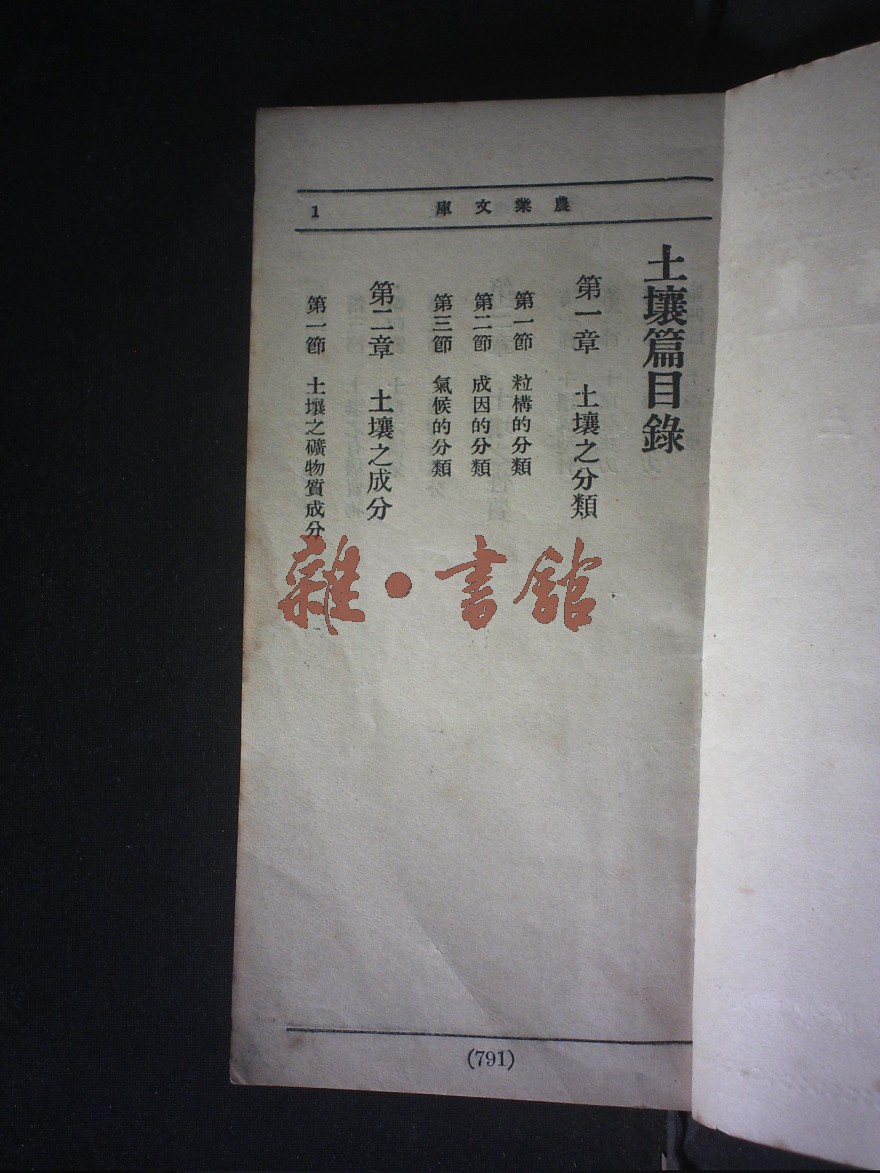 農業文庫
1
土壤篇目錄
第一章　土壤之分類
第一節　粒構的分類
第二節　成因的分類
第三節　氣候的分類
第二章　土壤之成分
第一節　土壤之礦物質成分
雜•書館
(791)